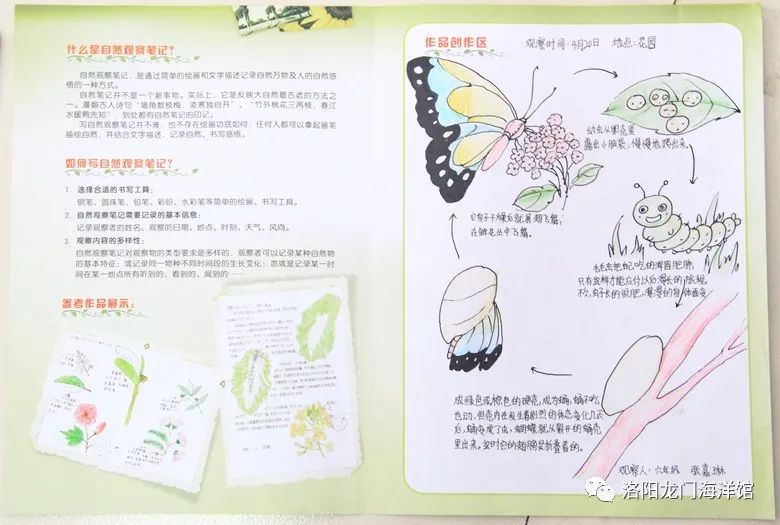 什么是自然观察笔记?
自然观察笔记,是通过简单的绘画和文字描述记录自然万物及人的自然感
悟的一种方式。
自然观察笔记并不是一个新事物。实际上,它是反映大自然最古老的方法之
一。厦翻古人诗句“墙角数枝梅,凌寒独自开”、“竹外桃花三两枝,春江
水暖鸭先知”,到处都有自然笔记的印记。
写自然观察笔记并不难,也不存在绘画功底如何,任何人都可以拿起画笔
描绘自然,并结合文字描述,记录自然、书写感悟。
如何写自然观察笔记?
1. 选择合适的书写工具:
钢笔、圆珠笔、铅笔、彩铅、水彩笔等简单的绘画、书写工具。
2. 自然观察笔记需要记录的基本信息:
记录观察者的姓名、观察的日期、地点、时刻、天气、风向。
3. 观察内容的多样性:
自然观察笔记对观察物的类型要求是多样的,观察者可以记录某种自然物
的基本特征;或记录同一物种不同时间段的生长变化;亦或是记录某一时
间在某一地点所有听到的、看到的、闻到的……
参考作品展示:
作品创作区
观察时间:4月20日 地点:花园
幼虫从卵壳里
露出小脑袋,慢慢地爬出来。
毛毛虫把自己吃的胖胖
只有这样才能应付以后漫长的旅程
它的翅膀干燥后就展翅飞舞,
在鲜花丛中飞舞。
成绿色或棕色的硬壳,成为蛹,蛹不吃
也不动,但壳内在发生着剧烈的体态变化几天
后,蛹变成了虫,蝴蝶就从裂开的蛹壳
里出来。这时它的翅膀是折叠着的。
观察人:六年级 张嘉琳
洛阳龙门海洋馆